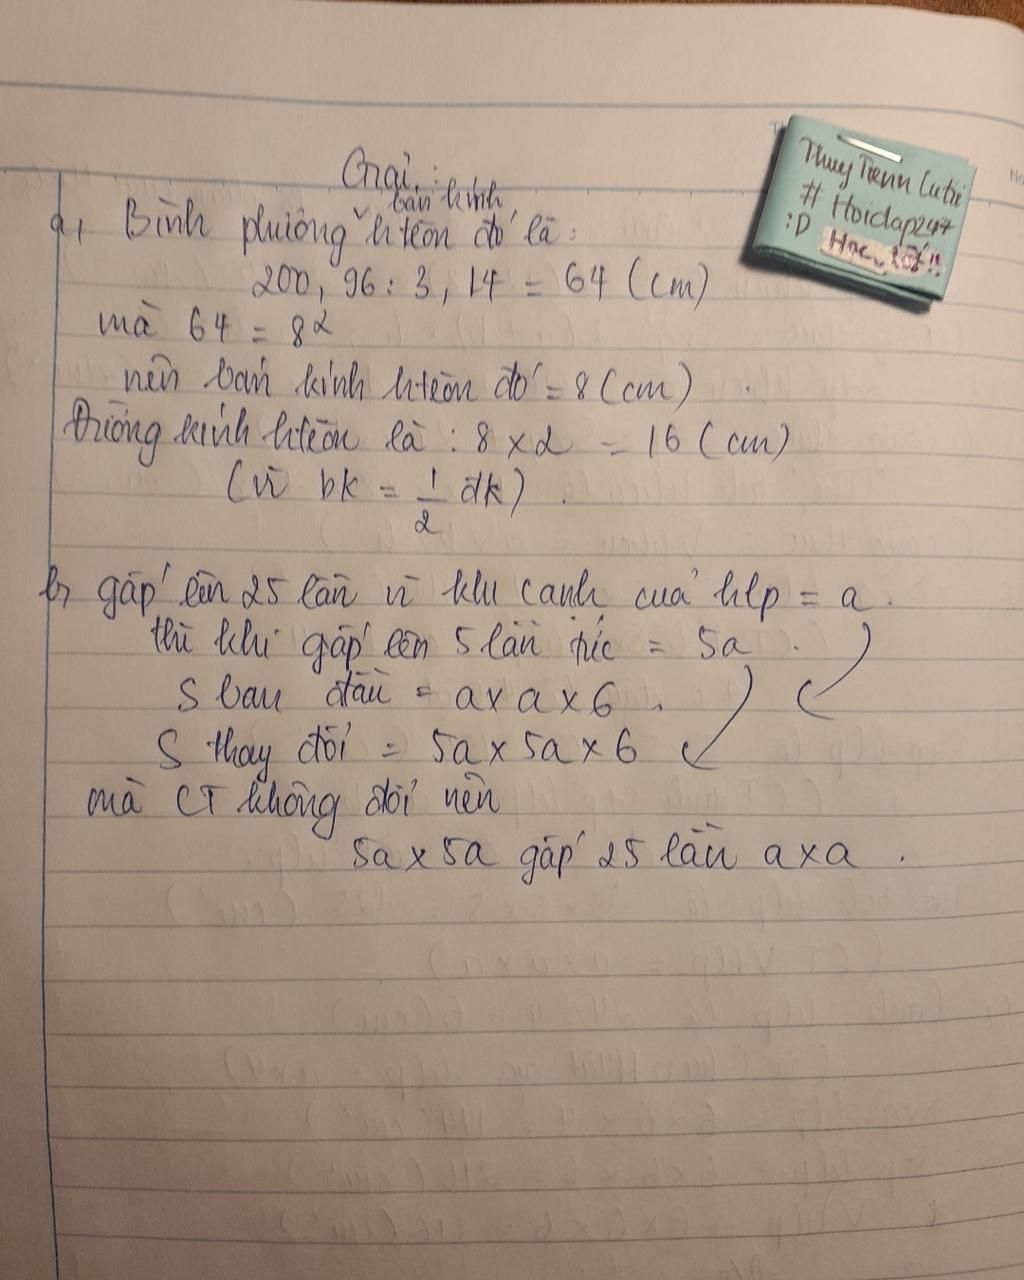 Giải:
a, Bình phương bán kính htròn đó là:
200,96 : 3,14 = 64 (cm)
mà 64 = 8²
nên bán kính htròn đó = 8 (cm).
Đường kính htròn là : 8 x 2 = 16 (cm)
(vì bk = 1/2 đk).
b, gấp lên 25 lần vì khi cạnh của hlp = a.
thì khi gấp lên 5 lần tức = 5a.
S ban đầu = a x a x 6.
S thay đổi = 5a x 5a x 6
mà CT không đổi nên
5a x 5a gấp 25 lần a x a.
Thuy Tienn Cutii
# Hoidap247
:D Học tốt!!